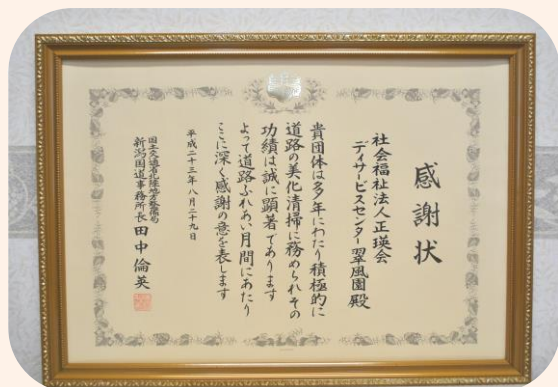 感謝状
社会福祉法人正瑛会
デイサービスセンター翠風園殿
貴団体は多年にわたり積極的に
道路の美化清掃に務められその
功績は誠に顕著であります
よって道路ふれあい月間にあたり
ここに深く感謝の意を表します
平成二十三年八月二十九日
国土交通省北陸地方整備局
新潟国道事務所長 田中倫英